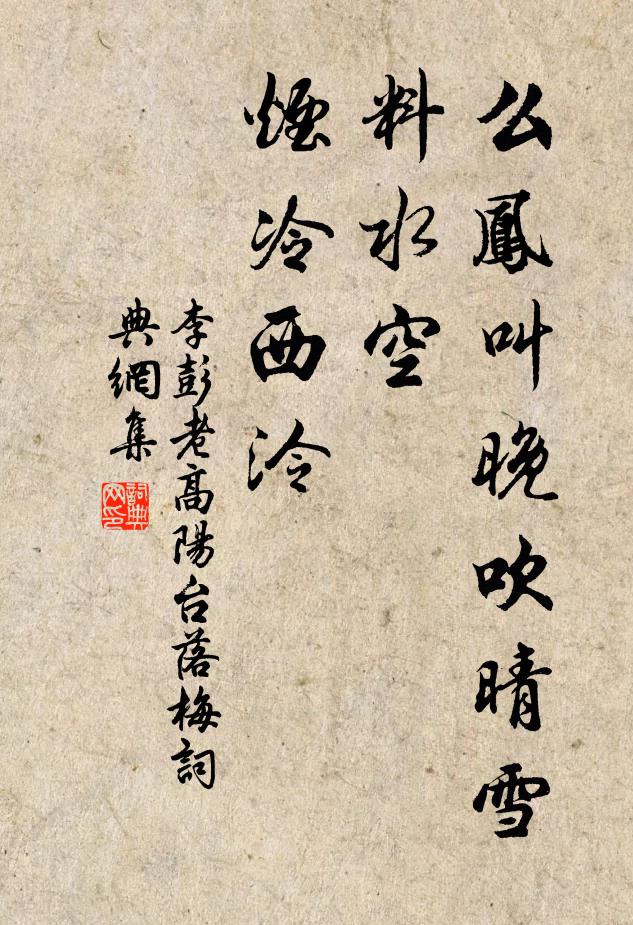 么鳳叫晚吹晴雪
料水空
煙冷西泠
李彭老高陽台落梅詞
典網集
詞典網印